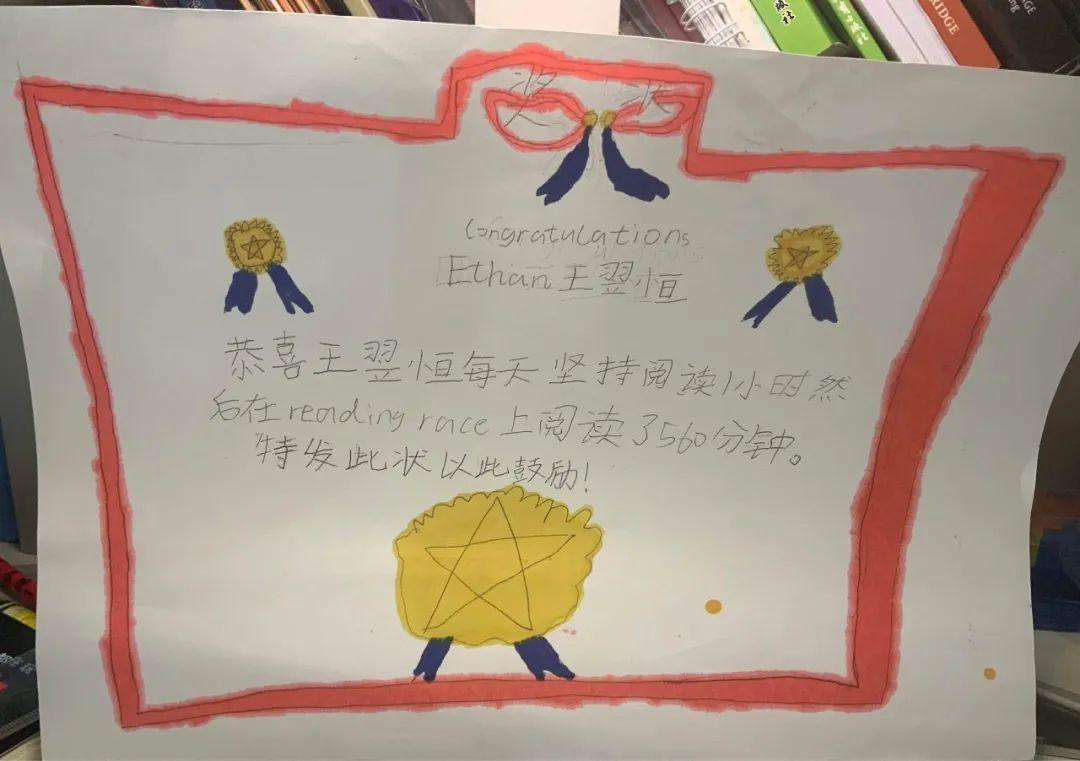 奖状
Congratulations
Ethan 王翌恒
恭喜王翌恒每天坚持阅读1小时然
后在reading race上阅读了560分钟。
特发此状以此鼓励!
版社
RIDGE